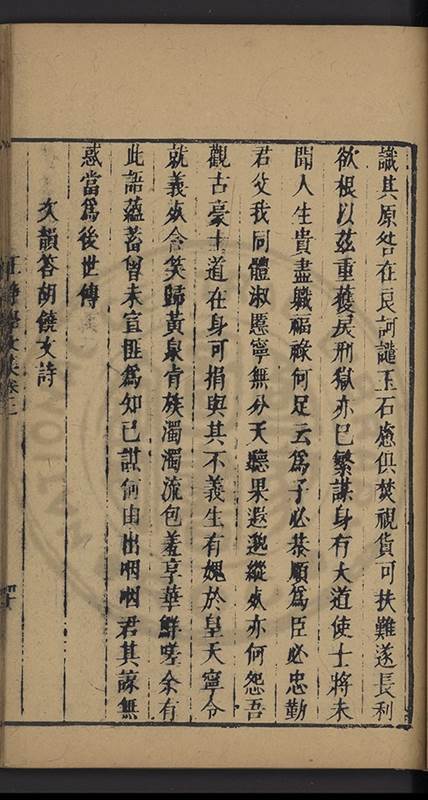 識其原咎在良訶譴玉石慮俱焚視貨可扶難遂長利
欲根以茲重獲戾刑獄亦巳繁謀身有大道使士將未
聞人生貴盡職福祿何足云爲子必恭順爲臣必忠勤
君父我同體淑慝寧無分天聽果遐邈縱死亦何怨吾
觀古豪士道在身可捐與其不義生有媿於皇天寧令
就義死含笑歸黃泉肯族濁濁流包羞享華鮮嗟余有
此語蘊蓄曾未宣匪爲知已謀何由出咽咽君其諒無
惑當爲後世傳
次韻答胡饒文詩
文集卷三